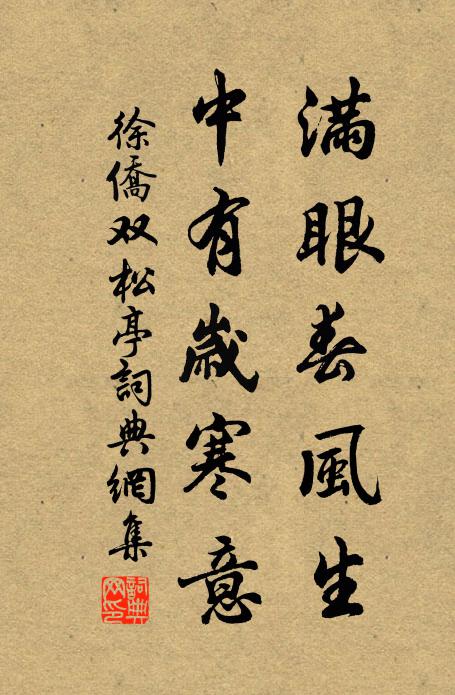 滿眼春風生
中有歲寒意
徐僑双松亭詞典網集
詞典网印